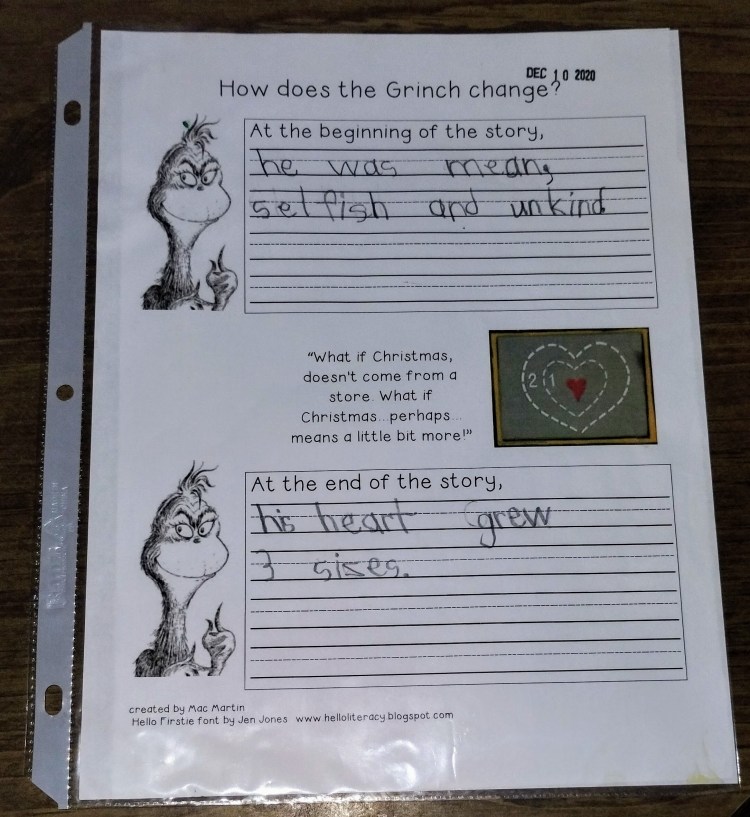 DEC 10 2020
How does the Grinch change?
At the beginning of the story,
he was mean,
selfish and unkind
"What if Christmas,
doesn't come from a
store. What if
Christmas...perhaps...
means a little bit more!"
2 1
At the end of the story,
his heart grew
3 sizes.
created by Mac Martin
Hello Firstie font by Jen Jones www.helloliteracy.blogspot.com